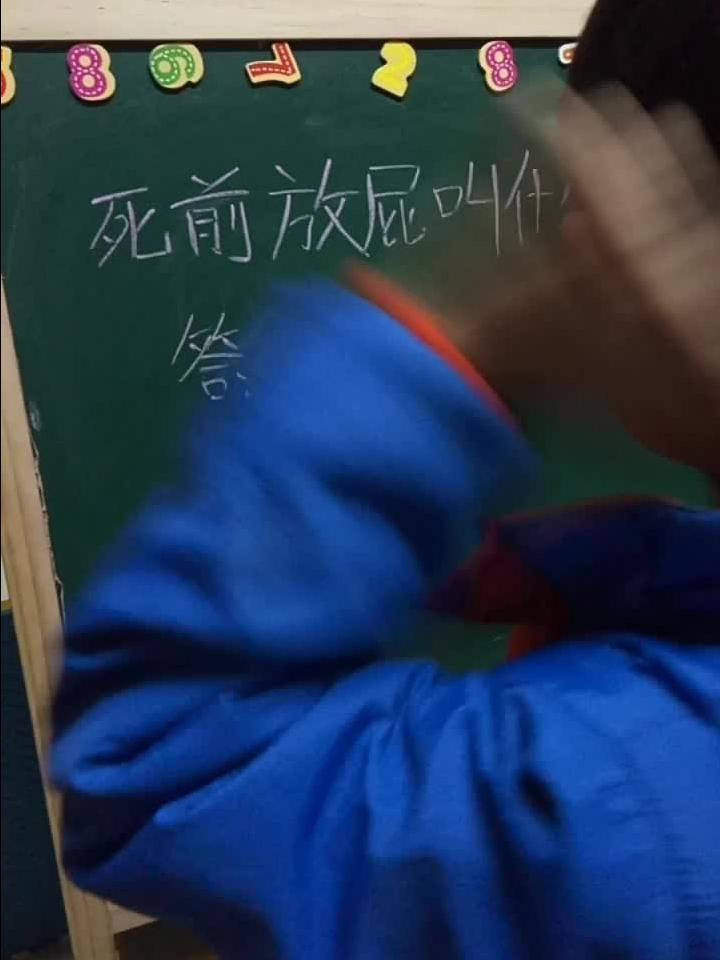 8 6 7 2 8
死前放屁叫什
答